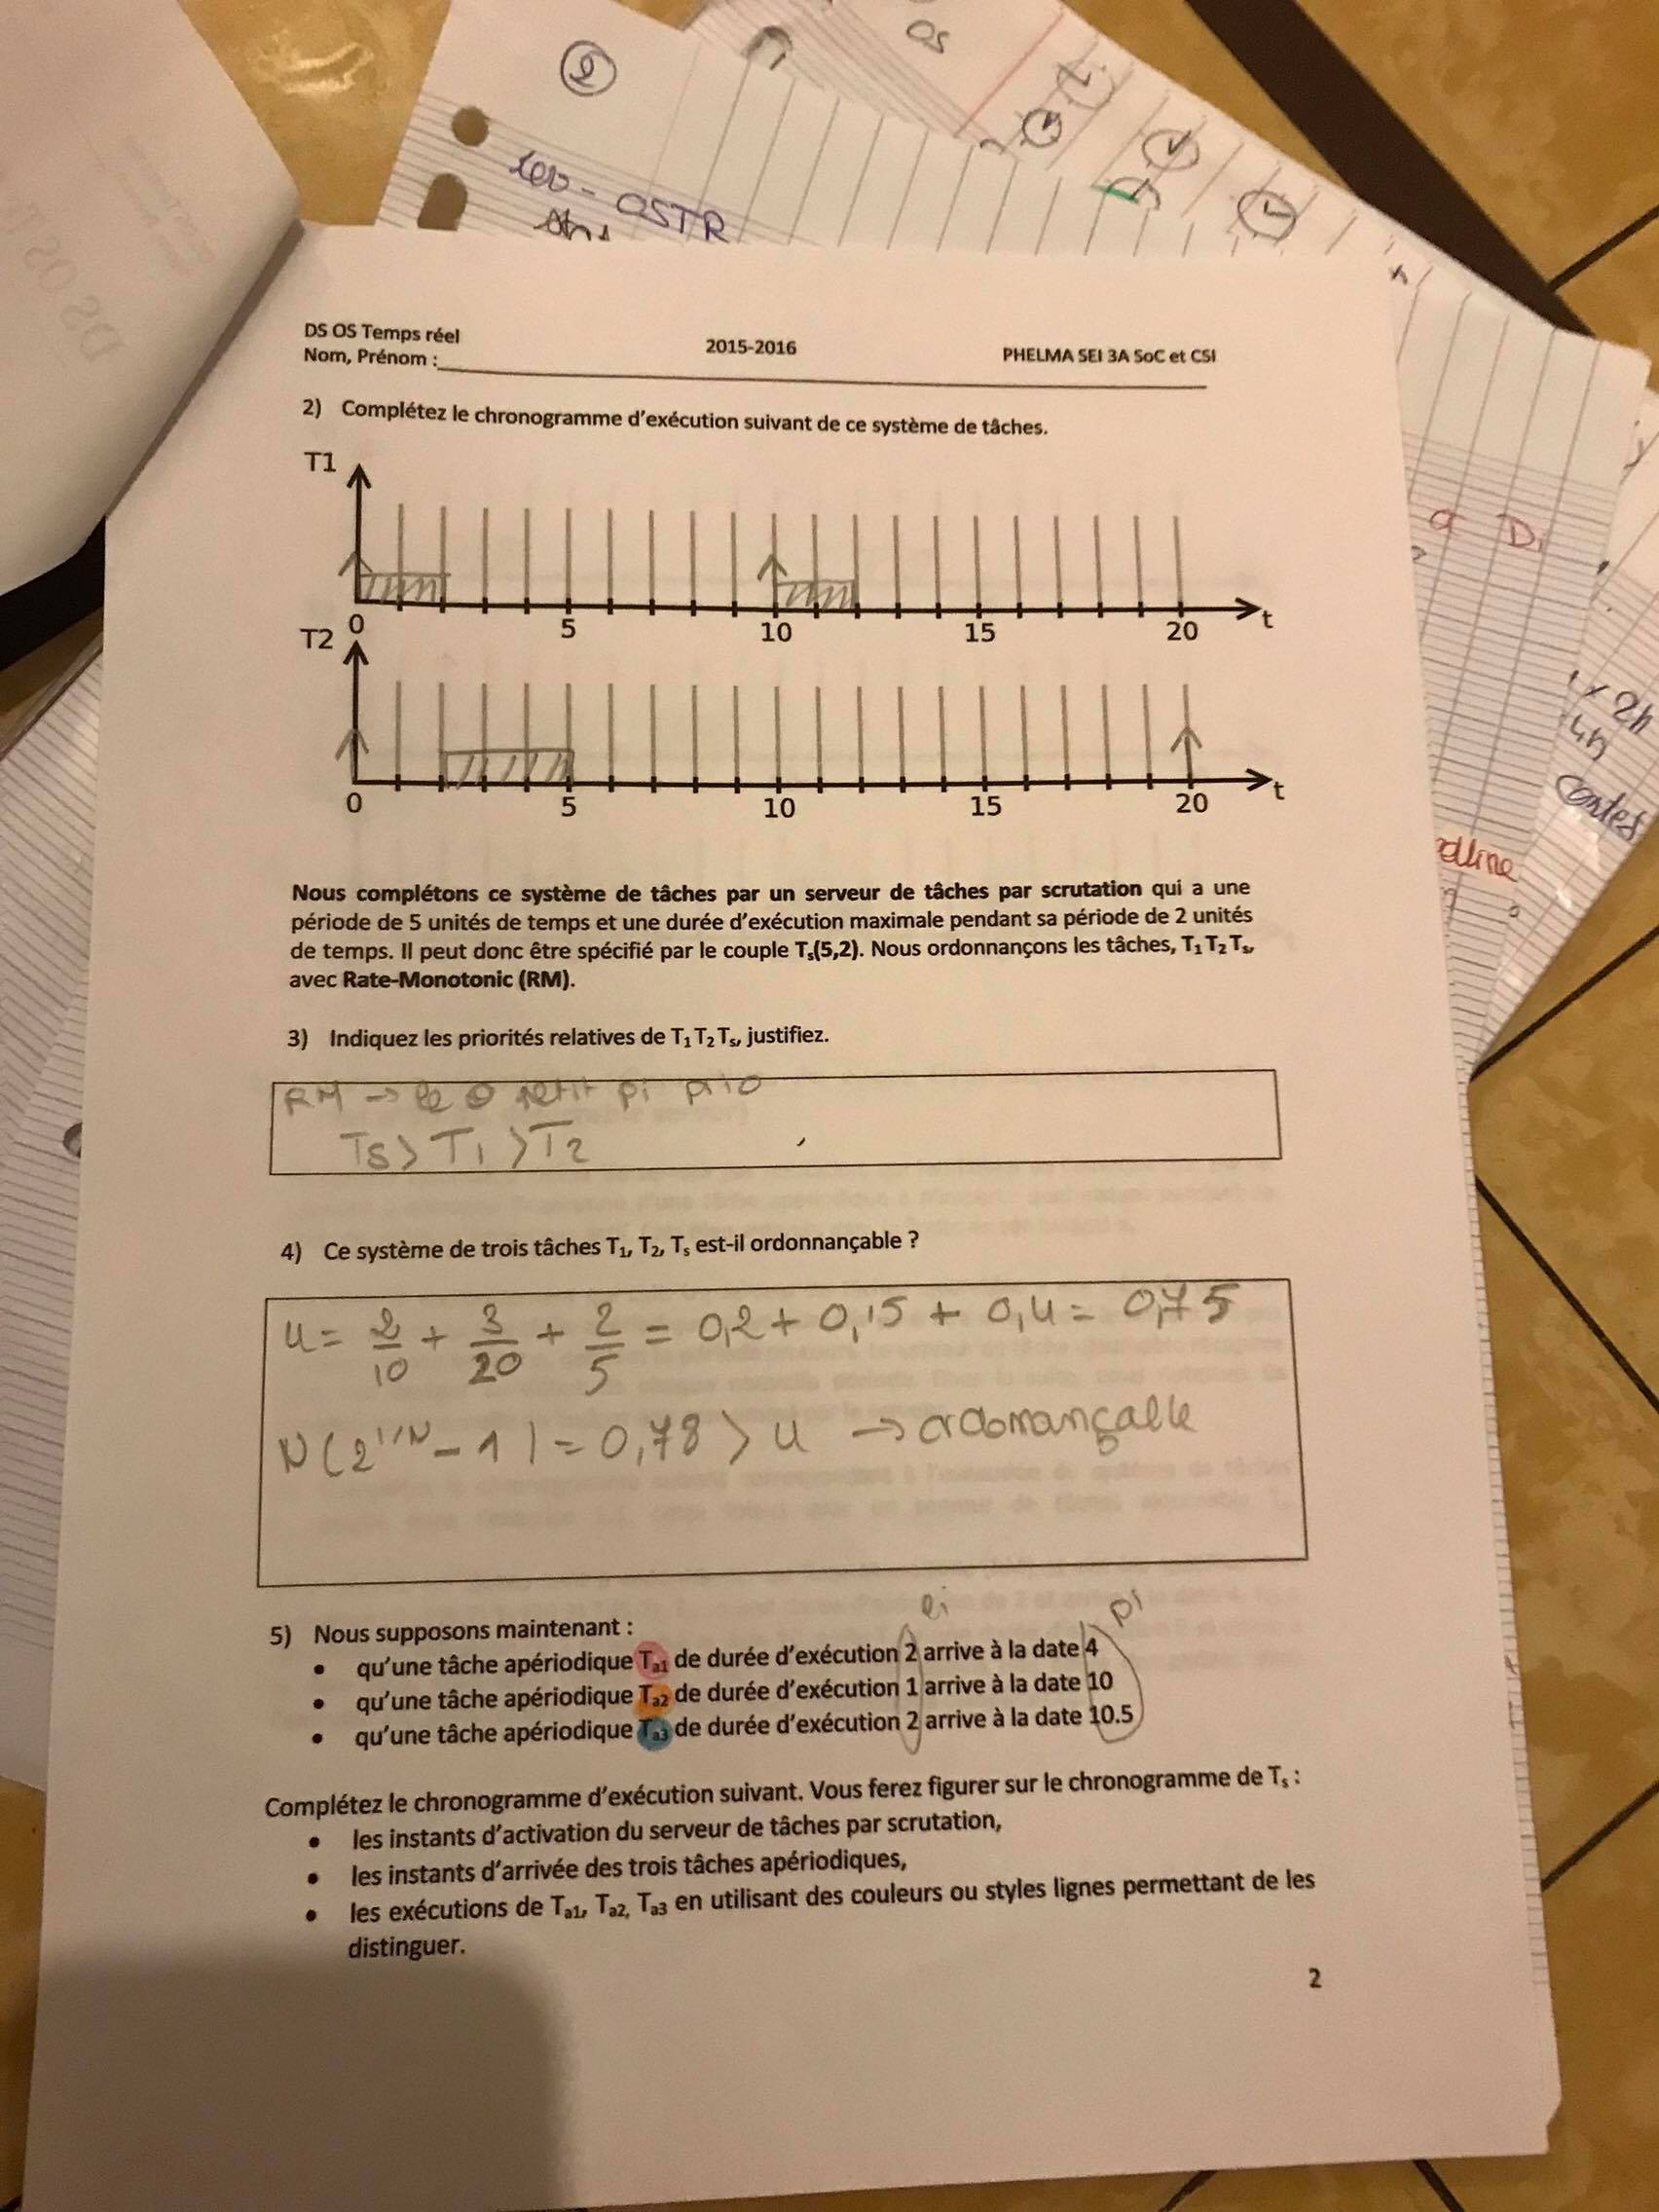 ②
OS
OSTR
DS OS Temps réel
2015-2016
PHELMA SEI 3A SoC et CSI
Nom, Prénom :
2) Complétez le chronogramme d'exécution suivant de ce système de tâches.
T1
0 5 10 15 20 t
T2
0 5 10 15 20 t
Nous complétons ce système de tâches par un serveur de tâches par scrutation qui a une
période de 5 unités de temps et une durée d'exécution maximale pendant sa période de 2 unités
de temps. Il peut donc être spécifié par le couple Ts(5,2). Nous ordonnançons les tâches, T1 T2 Ts,
avec Rate-Monotonic (RM).
3) Indiquez les priorités relatives de T1 T2 Ts, justifiez.
RM → le ⊖ petit pi prio
Ts > T1 > T2
4) Ce système de trois tâches T1, T2, Ts est-il ordonnançable ?
U = 2/10 + 3/20 + 2/5 = 0,2 + 0,15 + 0,4 = 0,75
N(2^1/N - 1) = 0,78 > U → ordonnançable
ei pi
5) Nous supposons maintenant :
• qu'une tâche apériodique Ta1 de durée d'exécution 2 arrive à la date 4
• qu'une tâche apériodique Ta2 de durée d'exécution 1 arrive à la date 10
• qu'une tâche apériodique Ta3 de durée d'exécution 2 arrive à la date 10.5
Complétez le chronogramme d'exécution suivant. Vous ferez figurer sur le chronogramme de Ts :
• les instants d'activation du serveur de tâches par scrutation,
• les instants d'arrivée des trois tâches apériodiques,
• les exécutions de Ta1, Ta2, Ta3 en utilisant des couleurs ou styles lignes permettant de les
distinguer.
2
Di
2h
4h